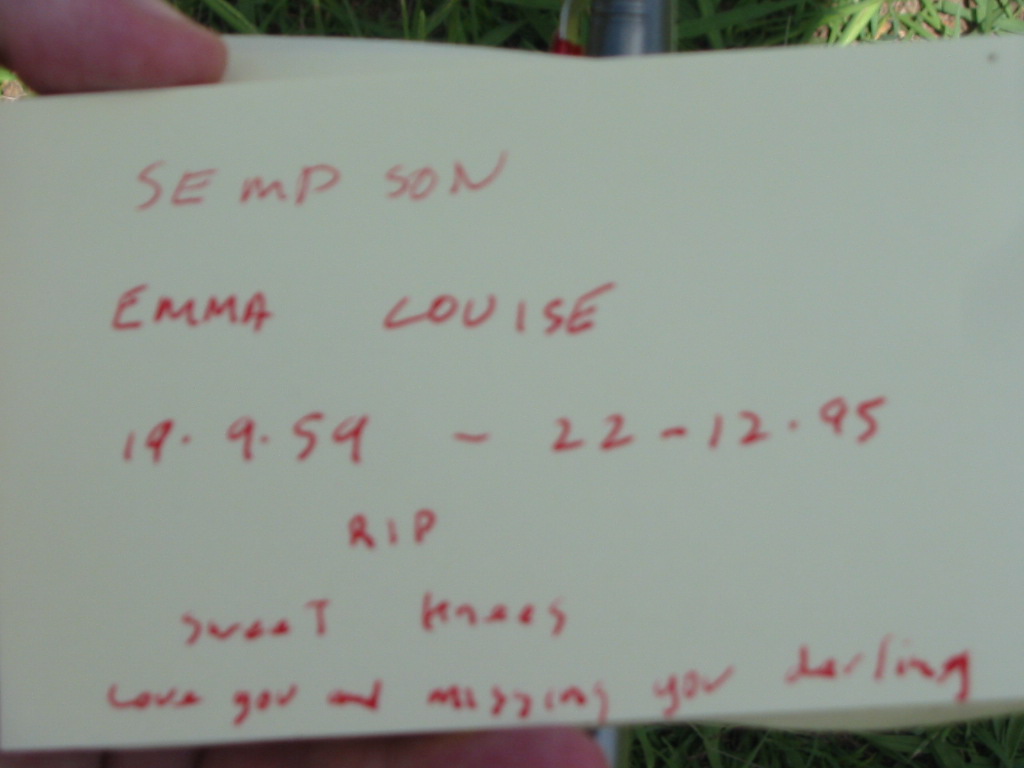 SEMPSON
EMMA LOUISE
19.9.59 - 22-12.95
RIP
sweeT knees
Love you and missing you darling